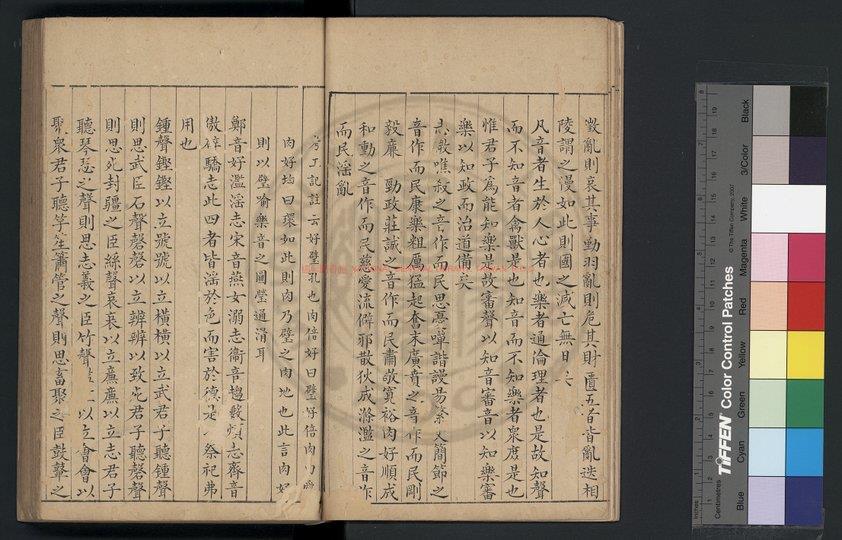 徵亂則哀其事勤羽亂則危其財匱五者皆亂迭相
陵謂之漫如此則國之滅亡無日
凡音者生於人心者也樂者通倫理者也是故知聲
而不知音者禽獸是也知音而不知樂者眾庶是也
惟君子為能知樂是故審聲以知音審音以知樂審
樂以知政而治道備矣
志微噍殺之音作而民思憂嘽諧謾易繁文簡節之
音作而民康樂粗厲猛起奮末廣賁之音作而民剛
毅廉 勁政莊誠之音作而民肅敬寬裕肉好順成
和動之音作而民慈愛流僻邪散狄成滌濫之音作
而民淫亂
考工記註云好璧孔也肉倍好曰璧好倍肉曰
肉好均曰環如此則肉乃璧之肉地也此言肉好
則以璧喻樂音之圓瑩通滑耳
鄭音好濫淫志宋音燕女溺志衛音趨數煩志齊音
傲辟驕志此四者皆淫於色而害於德是 祭祀弗
用也
鍾聲鏗鏗以立號號以立橫橫以立武君子聽鍾聲
則思武臣石聲磬磬以立辨辨以致死君子聽磬聲
則思死封疆之臣絲聲哀哀以立廉廉以立志君子
聽琴瑟之聲則思志義之臣竹聲 以立會會以
聚眾君子聽竽笙簫管之聲則思畜聚之臣鼓鼙之
Inches
Centimetres
TIFFEN Color Control Patches
© The Tiffen Company, 2007
Blue
Cyan
Green
Yellow
Red
Magenta
White
3/Color
Black